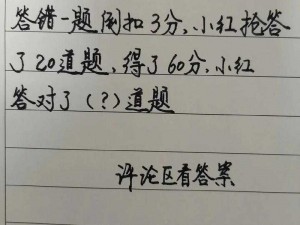 答错一题倒扣3分,小红抢答
了20道题,得了60分,小红
答对了(?)道题
评论区看答案